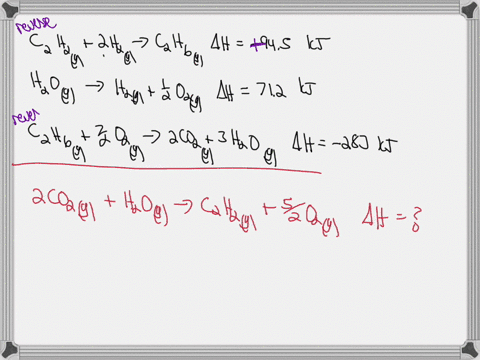 reverse
C2H2(g) + 2H2(g) → C2H6(g) ΔH = +94.5 kJ
H2O(g) → H2(g) + 1/2 O2(g) ΔH = 71.2 kJ
rever
C2H6(g) + 7/2 O2(g) → 2CO2(g) + 3H2O(g) ΔH = -283 kJ
2CO2(g) + H2O(g) → C2H2(g) + 5/2 O2(g) ΔH = ?